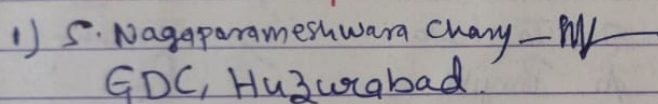 1) S. Nagaparameshwara Chary –
GDC, Huzurabad.